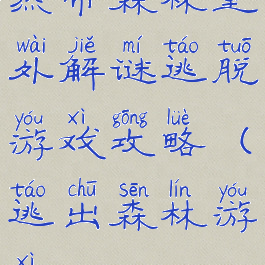 热带森林室
wài jiě mí táo tuō
外解谜逃脱
yóu xì gōng lüè
游戏攻略（
táo chū sēn lín yóu
逃出森林游
xì